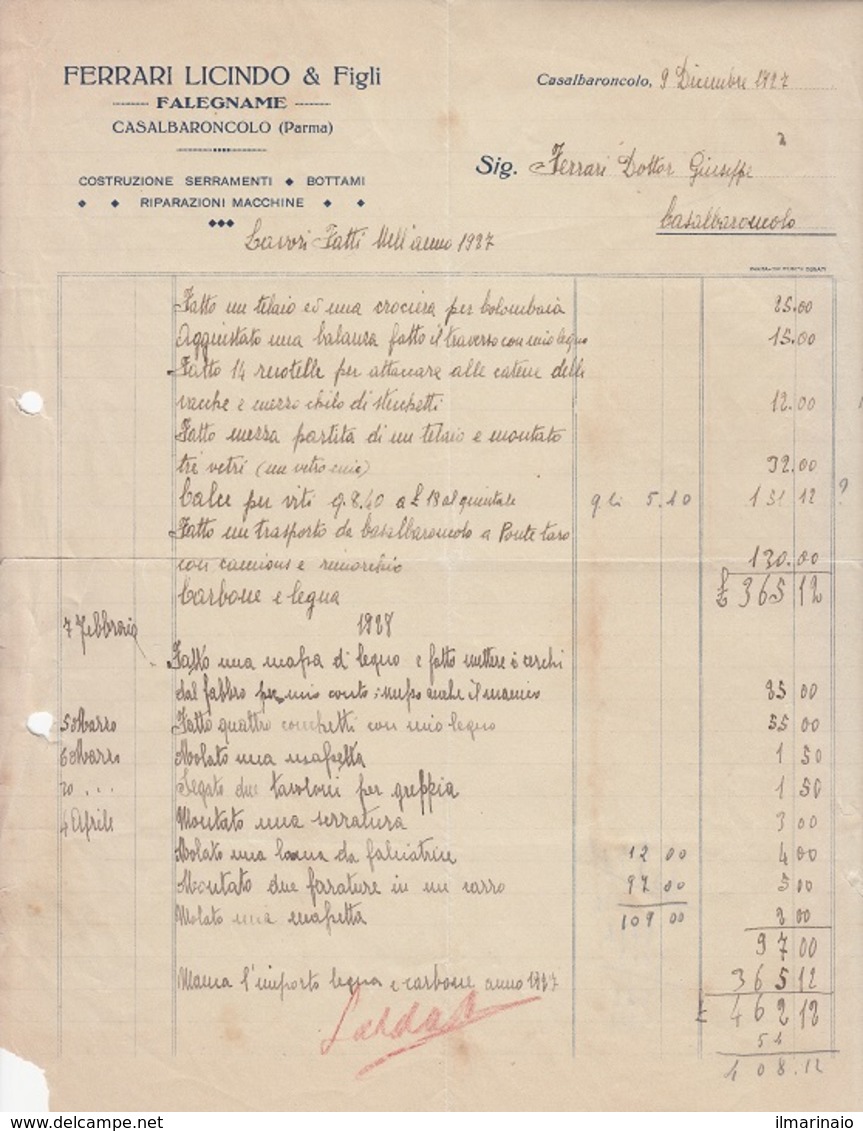 FERRARI LICINDO & Figli
FALEGNAME
CASALBARONCOLO (Parma)
COSTRUZIONE SERRAMENTI ◆ BOTTAMI
◆ ◆ RIPARAZIONI MACCHINE ◆ ◆
Casalbaroncolo, 9 Dicembre 1927
Sig. Ferrari Dottor Giuseppe
Casalbaroncolo
Lavori Fatti Nell'anno 1927
Fatto un telaio ed una crociera per Colombaia 25.00
Aqquistato una balanza fatto il traverso con mio legno 15.00
Fatto 14 ruotelle per attaccare alle catene delle
vacche e mezzo chilo di 12.00
Fatto mezza partita di un telaio e montato
tre vetri (un vetro mio) 32.00
Calce per viti q. 8.40 a £ 18 al quintale qli 5.10 151 12 ?
Fatto un trasporto da Casalbaroncolo a Ponte taro
con camions e rimorchio 130.00
Carbone e legna £ 365 12
7 Febbraio 1928
Fatto una massa di legno e fatto mettere i cerchi
dal fabbro per mio conto: messo anche il manico 25 00
5 Marzo Fatto quattro con mio legno 55 00
6 Marzo Molato una 1 50
20 . . . Segato due tavoloni per greppia 1 50
4 Aprile Montato una serratura 3 00
Molato una lama da falciatrice 12 00 4 00
Montato due in un carro 97 00 5 00
Molato una 109 00 2 00
97 00
Manca l'importo legna e carbone anno 1927 365 12
£ 462 12
54
408.12
Saldato
ilmarinaio